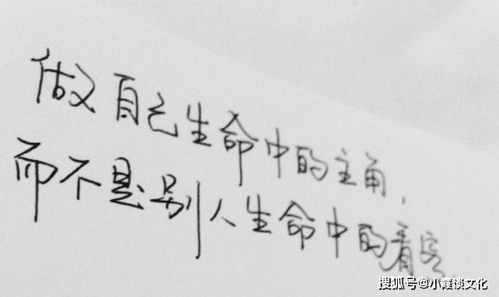 做自己生命中的主角，
而不是别人生命中的看客
搜狐号@小霞谈文化